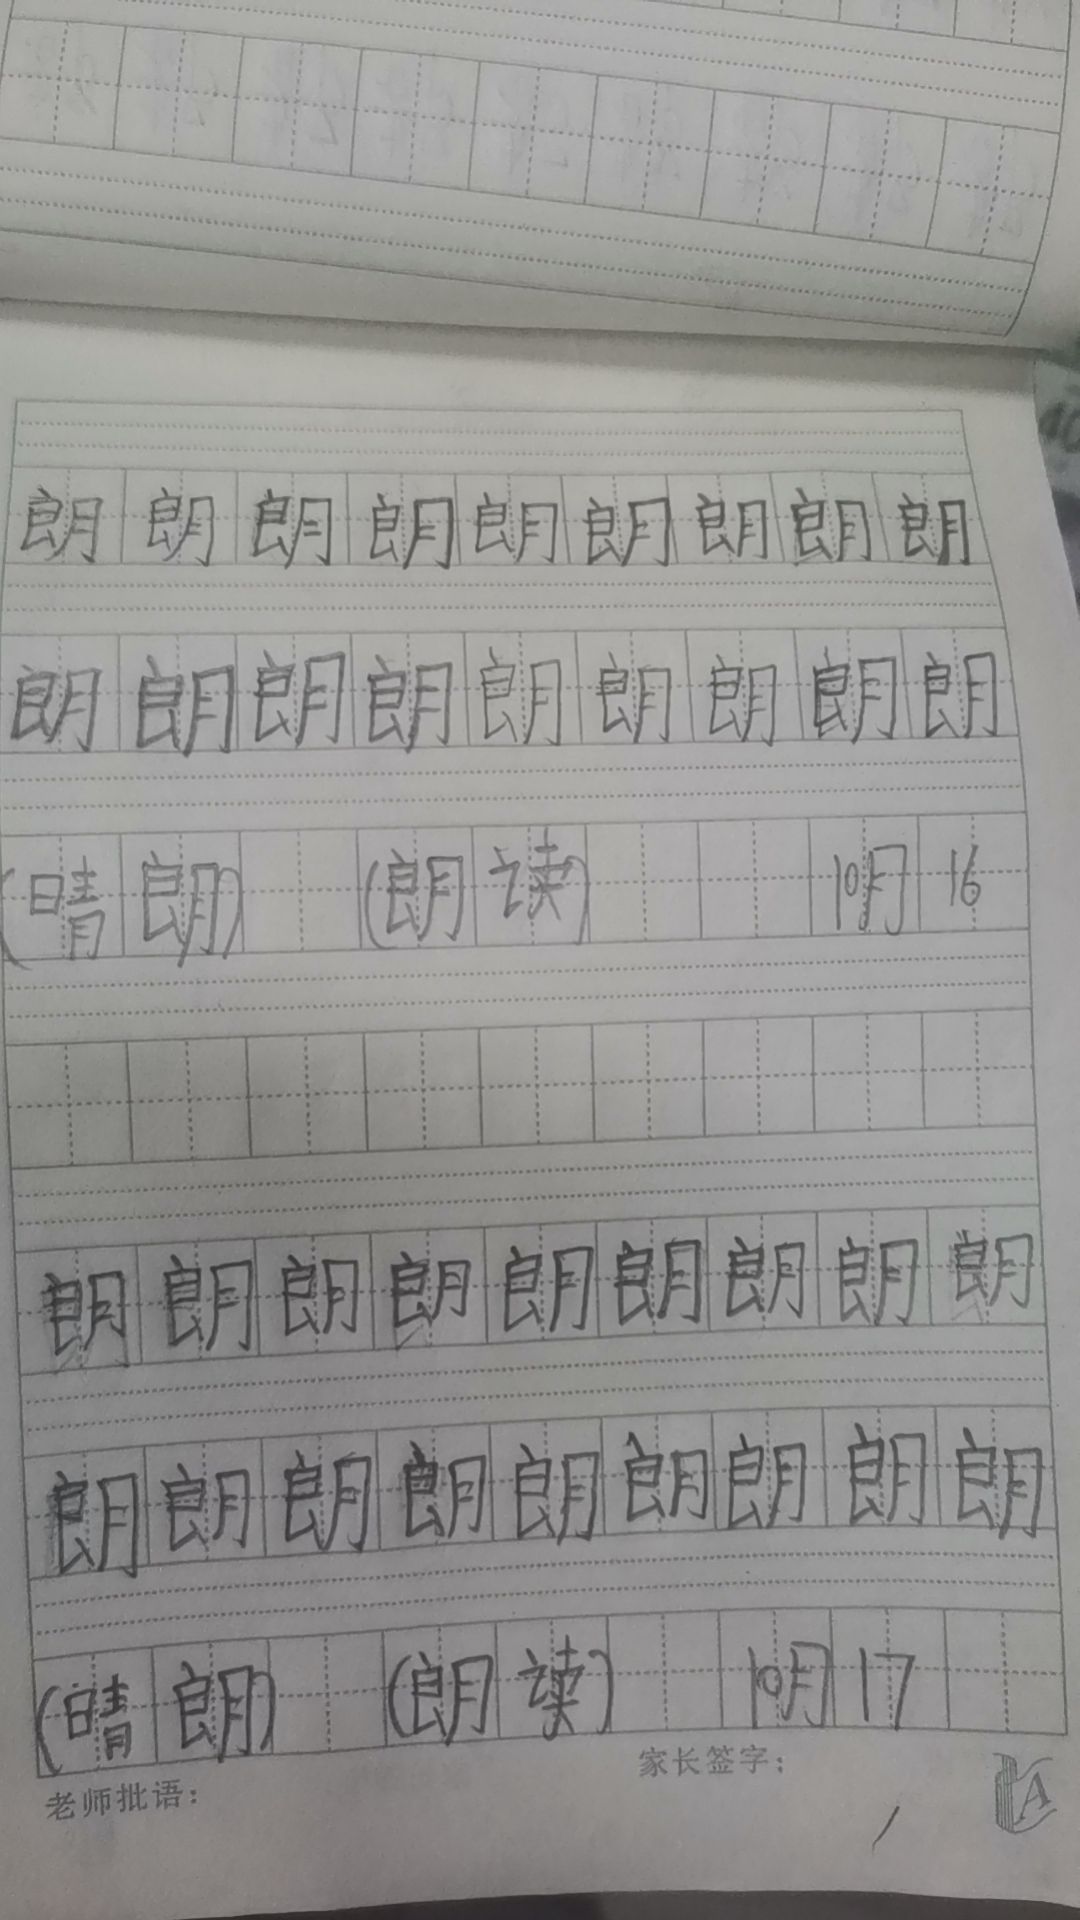 朗朗朗朗朗朗朗朗朗
朗朗朗朗朗朗朗朗朗
(晴朗) (朗读) 10月16
朗朗朗朗朗朗朗朗朗
朗朗朗朗朗朗朗朗朗
(晴朗) (朗读) 10月17
家长签字：
老师批语：
A